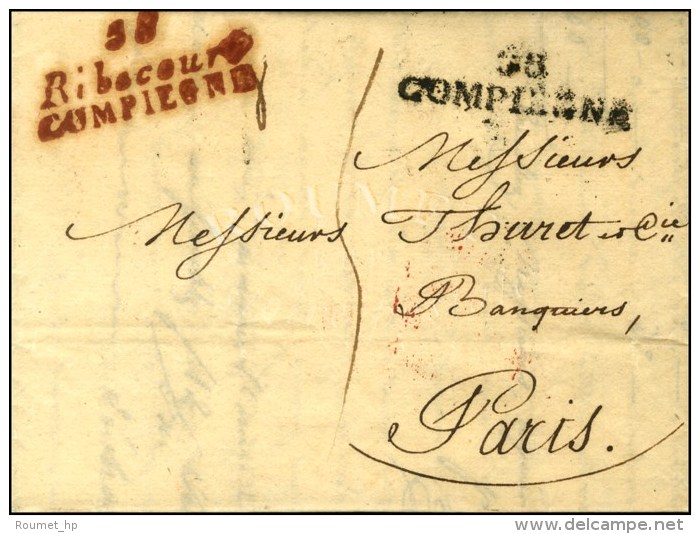 58
Ribecourt
COMPIEGNE
58
COMPIEGNE
Messieurs
Messieurs Thuret et Cie
Banquiers,
Paris.
Roumet_hp
www.delcampe.net